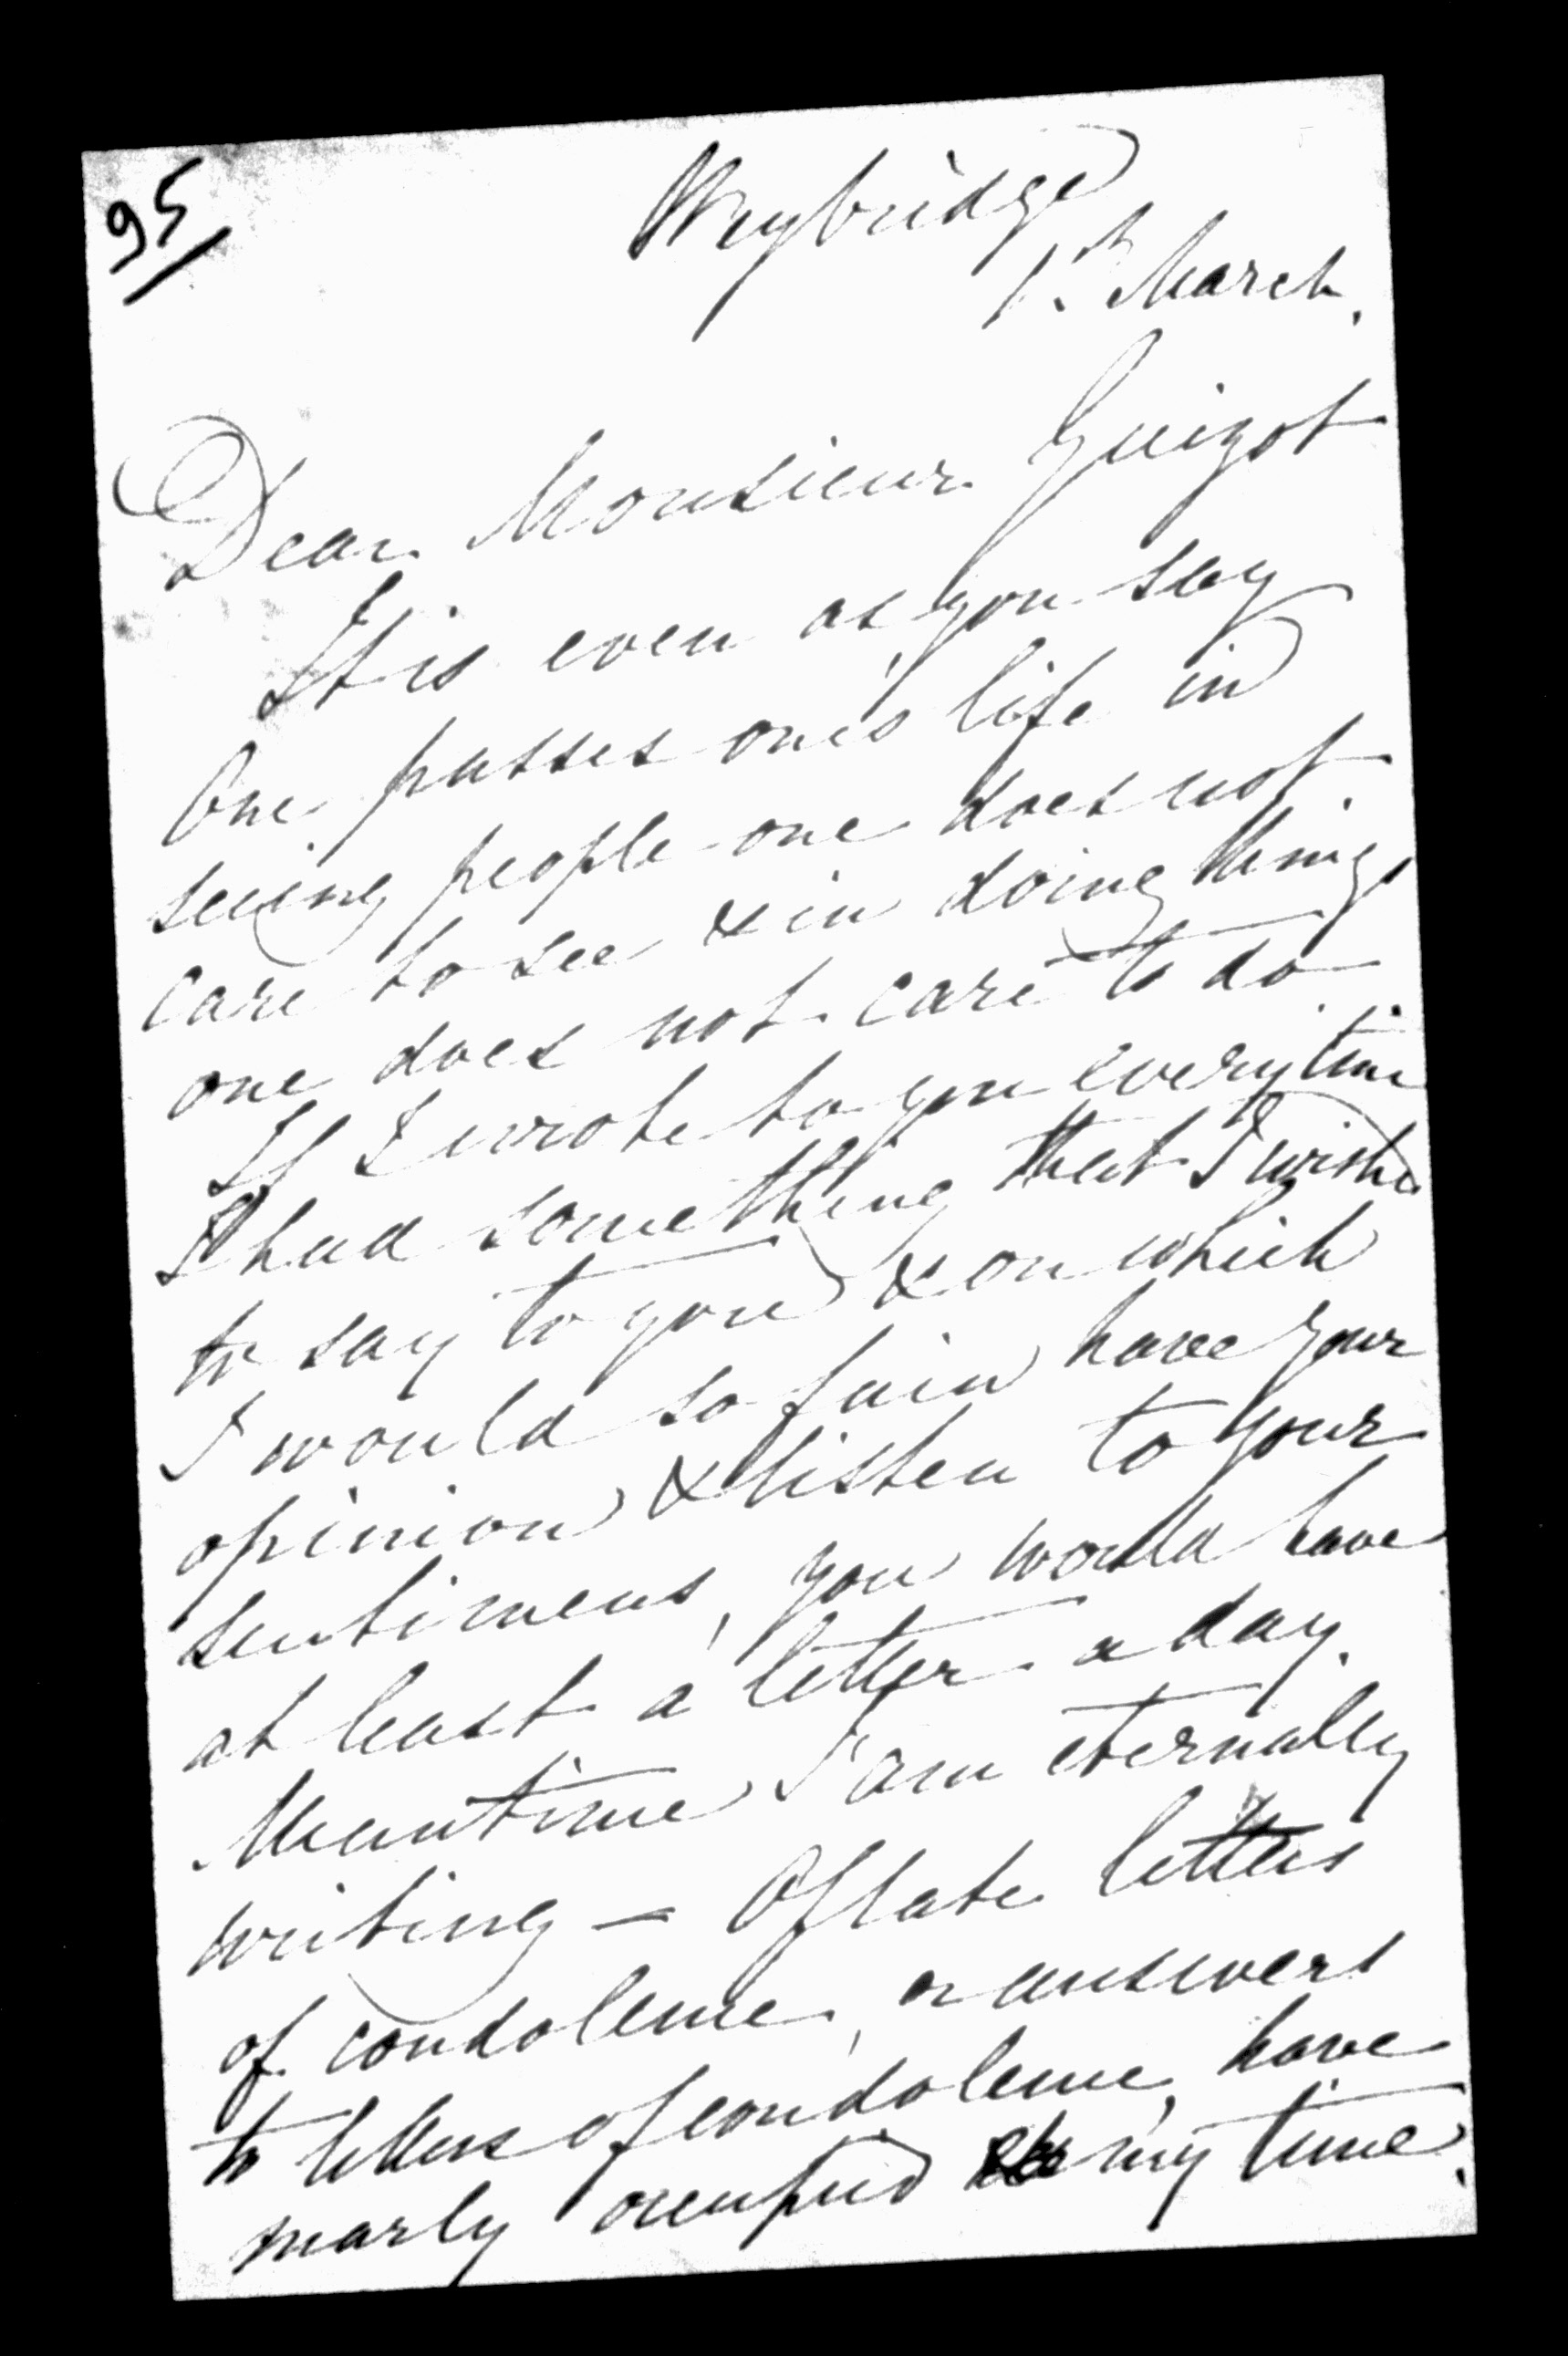 95
Weybridge
1st March.
Dear Monsieur Guizot
It is even as you say,
One passes one's life in
seeing people one does not
care to see & in doing things
one does not care to do.
If I wrote to you every time
I had something that I wish
to say to you & on which
I would so fain have your
opinion & listen to your
sentimens, you would have
at least a letter a day.
Meantime I am eternally
writing — Of late letters
of condolence, or answers
to letters of condolence, have
nearly occupied my time.